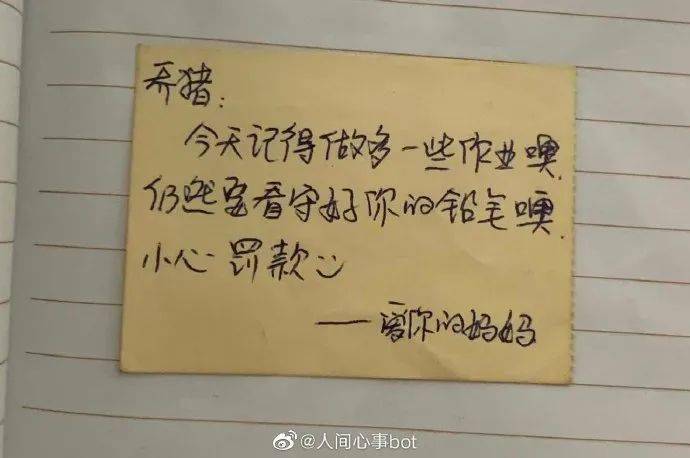 乔猪：
今天记得做多一些作业噢，
仍然要看守好你的铅笔噢，
小心罚款
——爱你的妈妈
@人间心事bot